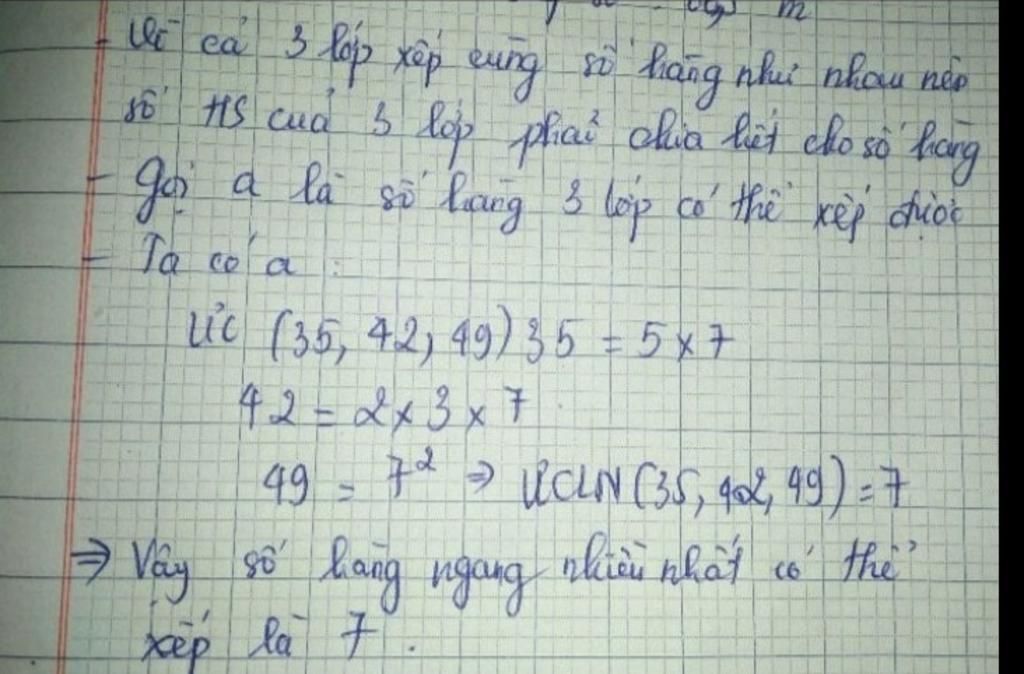 - Vì cả 3 lớp xếp cùng số hàng như nhau nên
số HS của 3 lớp phải chia hết cho số hàng
- Gọi a là số hàng 3 lớp có thể xếp được
- Ta có a :
ƯC (35, 42, 49) 35 = 5 x 7
42 = 2 x 3 x 7
49 = 7² ⇒ ƯCLN (35, 42, 49) = 7
⇒ Vậy số hàng ngang nhiều nhất có thể
xếp là 7.